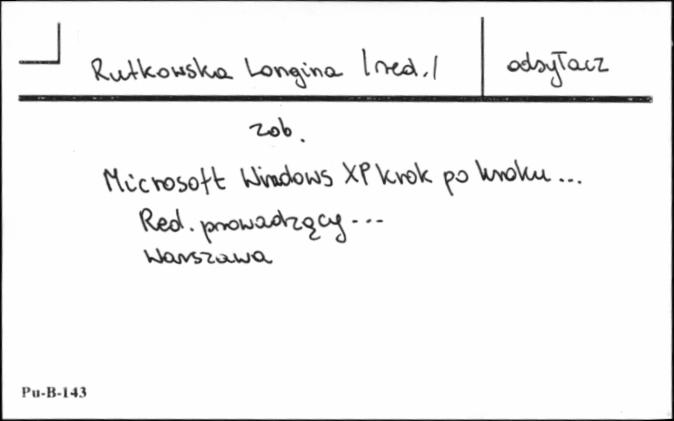 Rutkowska Longina /red./ odsyłacz
zob.
Microsoft Windows XP krok po kroku...
Red. prowadzący...
Warszawa
Pu-B-143